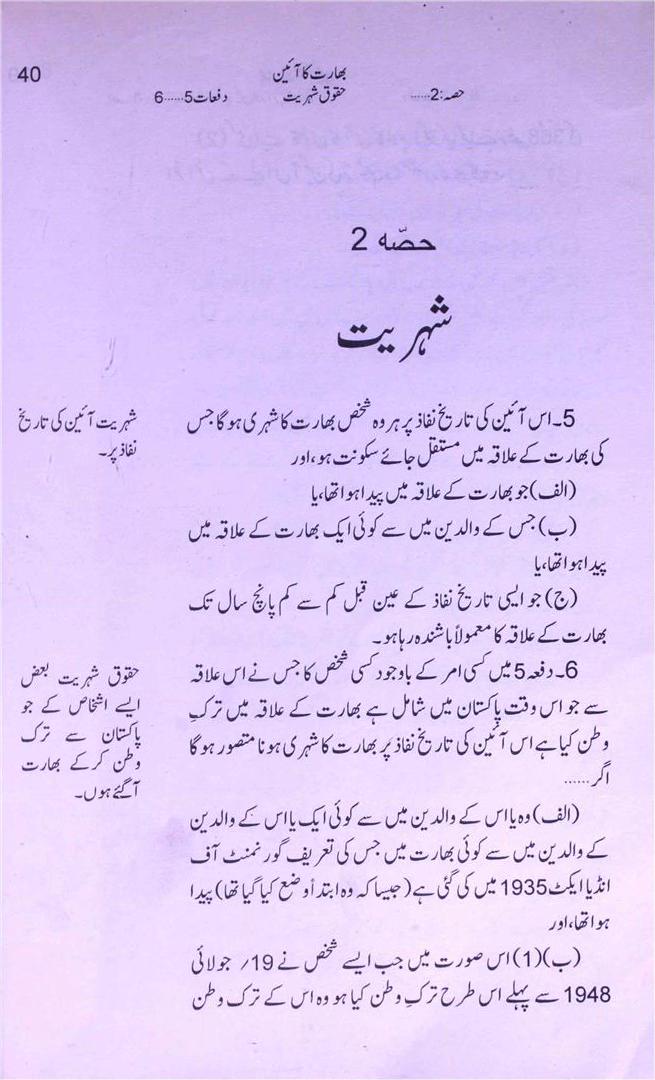 40
بھارت کا آئین
حصہ:2...... حقوق شہریت دفعات 5......6
حصّہ 2
شہریت
شہریت آئین کی تاریخ
نفاذ پر۔
5۔ اس آئین کی تاریخ نفاذ پر ہر وہ شخص بھارت کا شہری ہوگا جس
کی بھارت کے علاقہ میں مستقل جائے سکونت ہو، اور
(الف) جو بھارت کے علاقہ میں پیدا ہوا تھا، یا
(ب) جس کے والدین میں سے کوئی ایک بھارت کے علاقہ میں
پیدا ہوا تھا، یا
(ج) جو ایسی تاریخ نفاذ کے عین قبل کم سے کم پانچ سال تک
بھارت کے علاقہ کا معمولاً باشندہ رہا ہو۔
حقوق شہریت بعض
ایسے اشخاص کے جو
پاکستان سے ترک
وطن کر کے بھارت
آگئے ہوں۔
6۔ دفعہ 5 میں کسی امر کے باوجود کسی شخص کا جس نے اس علاقہ
سے جو اس وقت پاکستان میں شامل ہے بھارت کے علاقہ میں ترکِ
وطن کیا ہے اس آئین کی تاریخ نفاذ پر بھارت کا شہری ہونا متصور ہوگا
اگر......
(الف) وہ یا اس کے والدین میں سے کوئی ایک یا اس کے والدین
کے والدین میں سے کوئی بھارت میں جس کی تعریف گورنمنٹ آف
انڈیا ایکٹ 1935 میں کی گئی ہے (جیسا کہ وہ ابتدأ وضع کیا گیا تھا) پیدا
ہوا تھا، اور
(ب)(1) اس صورت میں جب ایسے شخص نے 19؍ جولائی
1948 سے پہلے اس طرح ترکِ وطن کیا ہو وہ اس کے ترک وطن